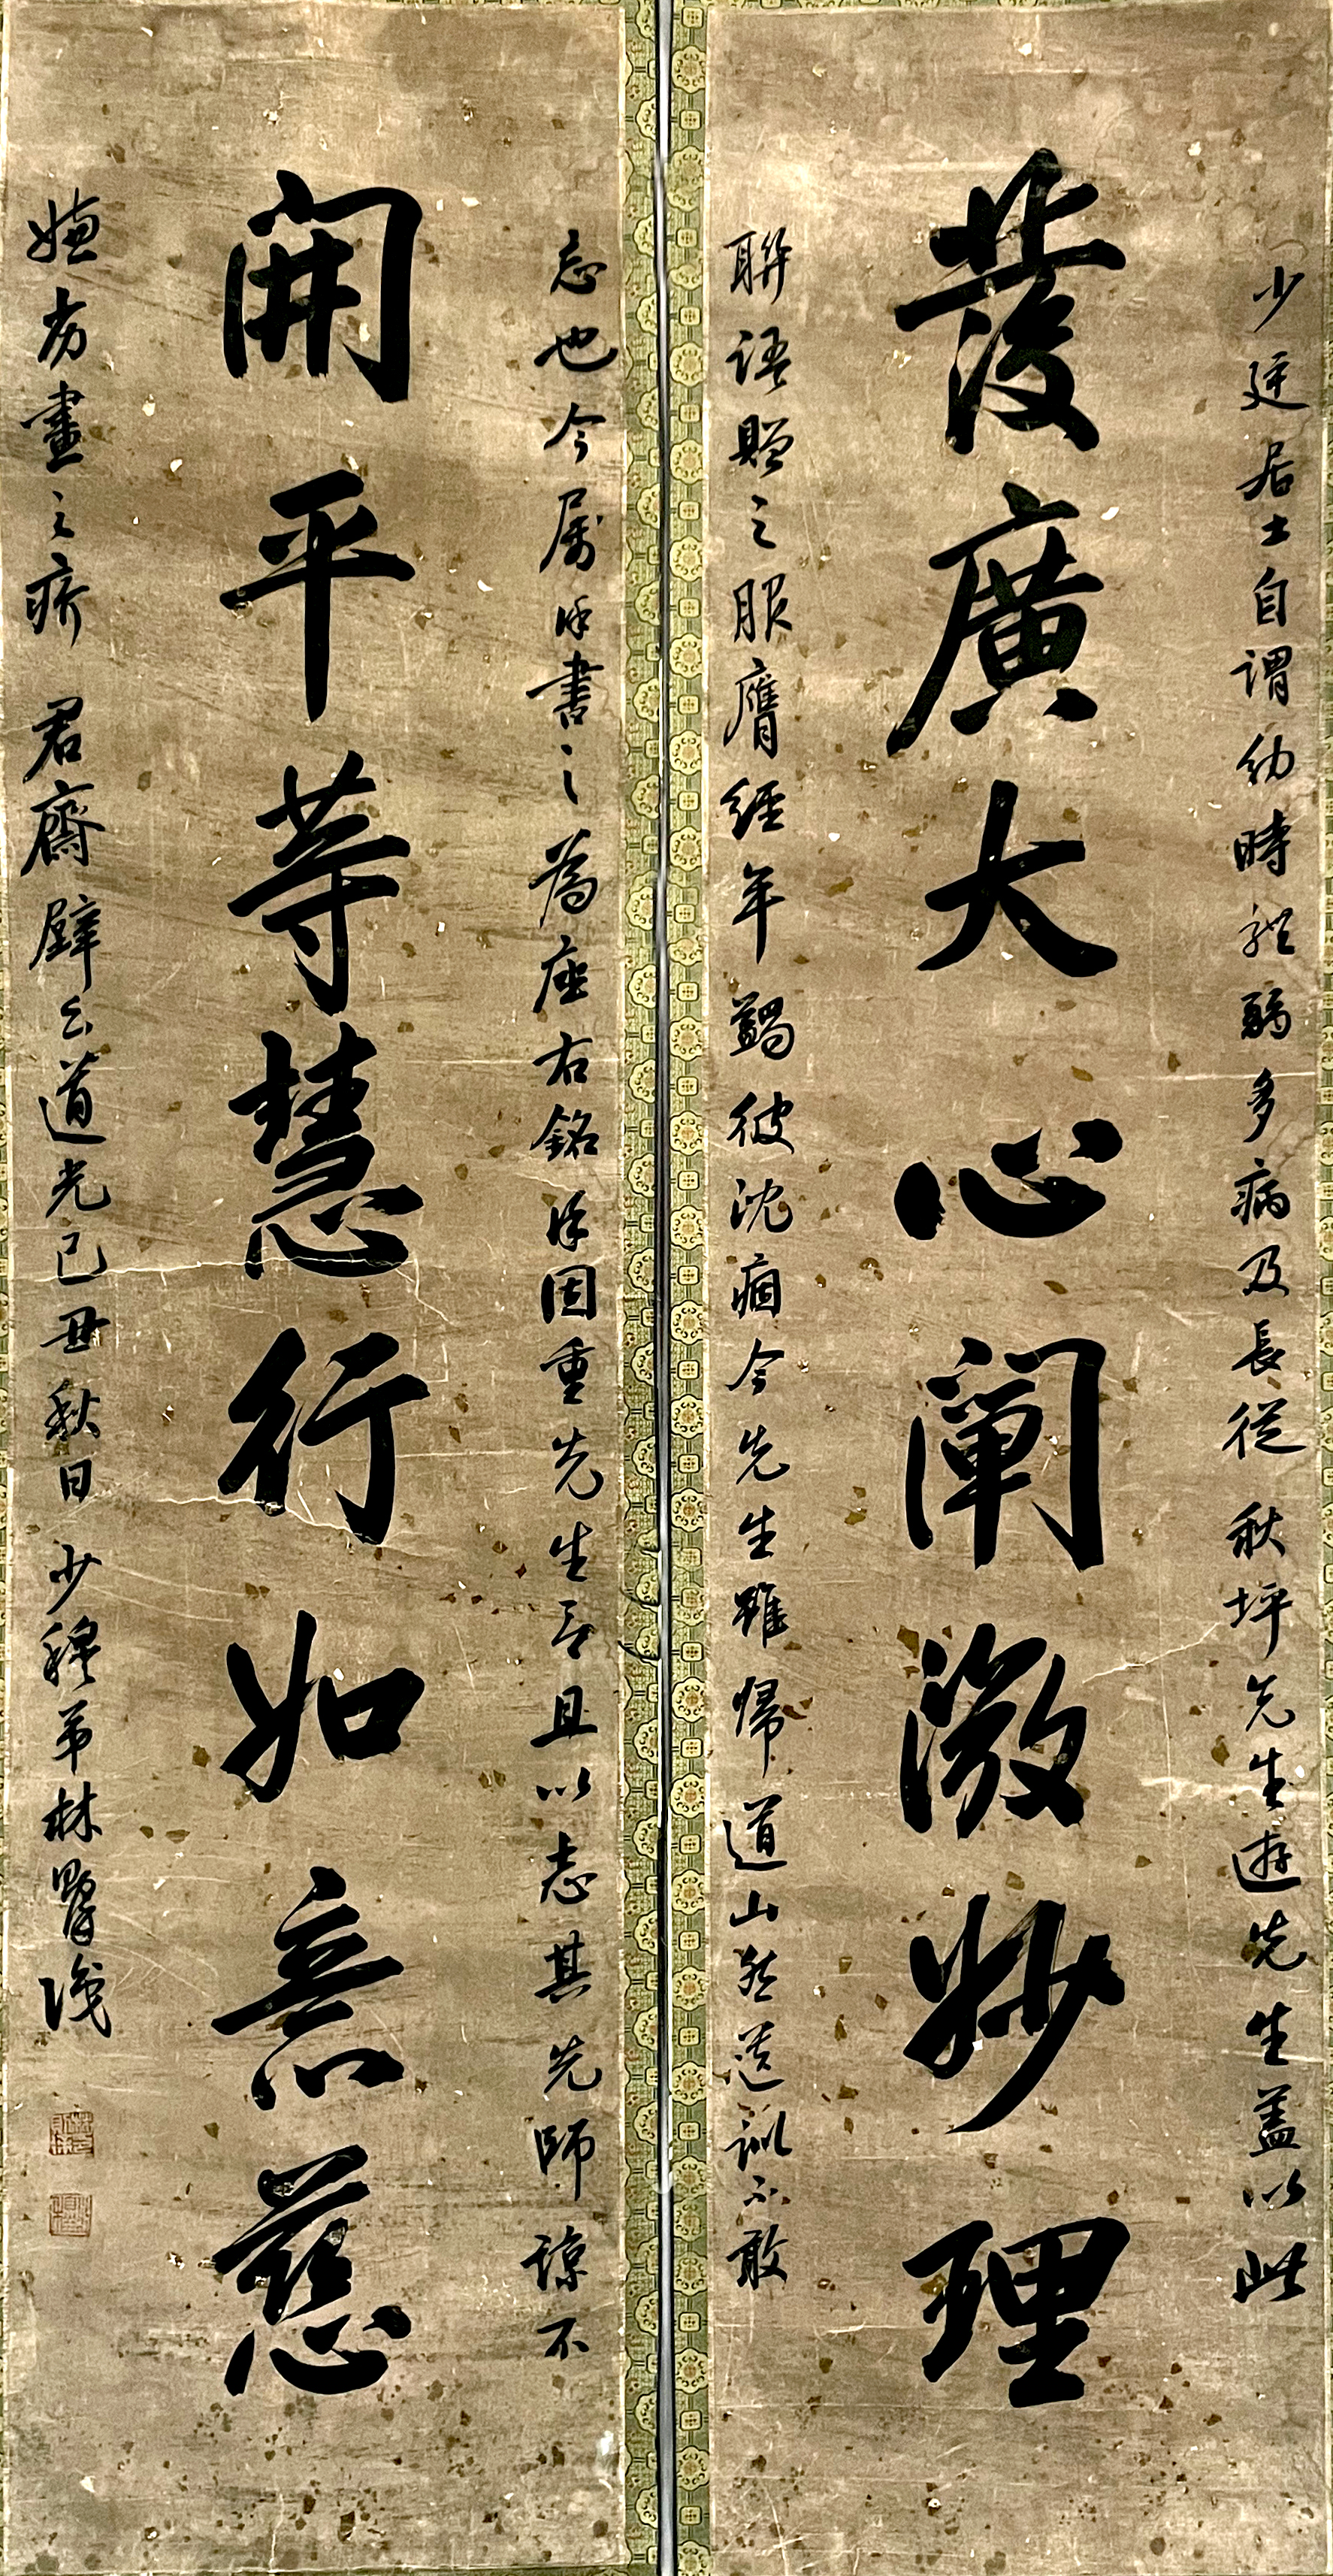 少廷居士自謂幼時視弱多病及長從秋坪先生遊先生蓋以此
發廣大心闡微妙理
聯語贈之服膺經年蠲彼沈痼今先生雖歸道山然遺訓不敢
忘也今屬余書之為座右銘余因重先生言且以志其先師諒不
開平等慧行如意慈
嫌为畫之疥君齋壁云道光己丑秋日少穆弟林則徐識